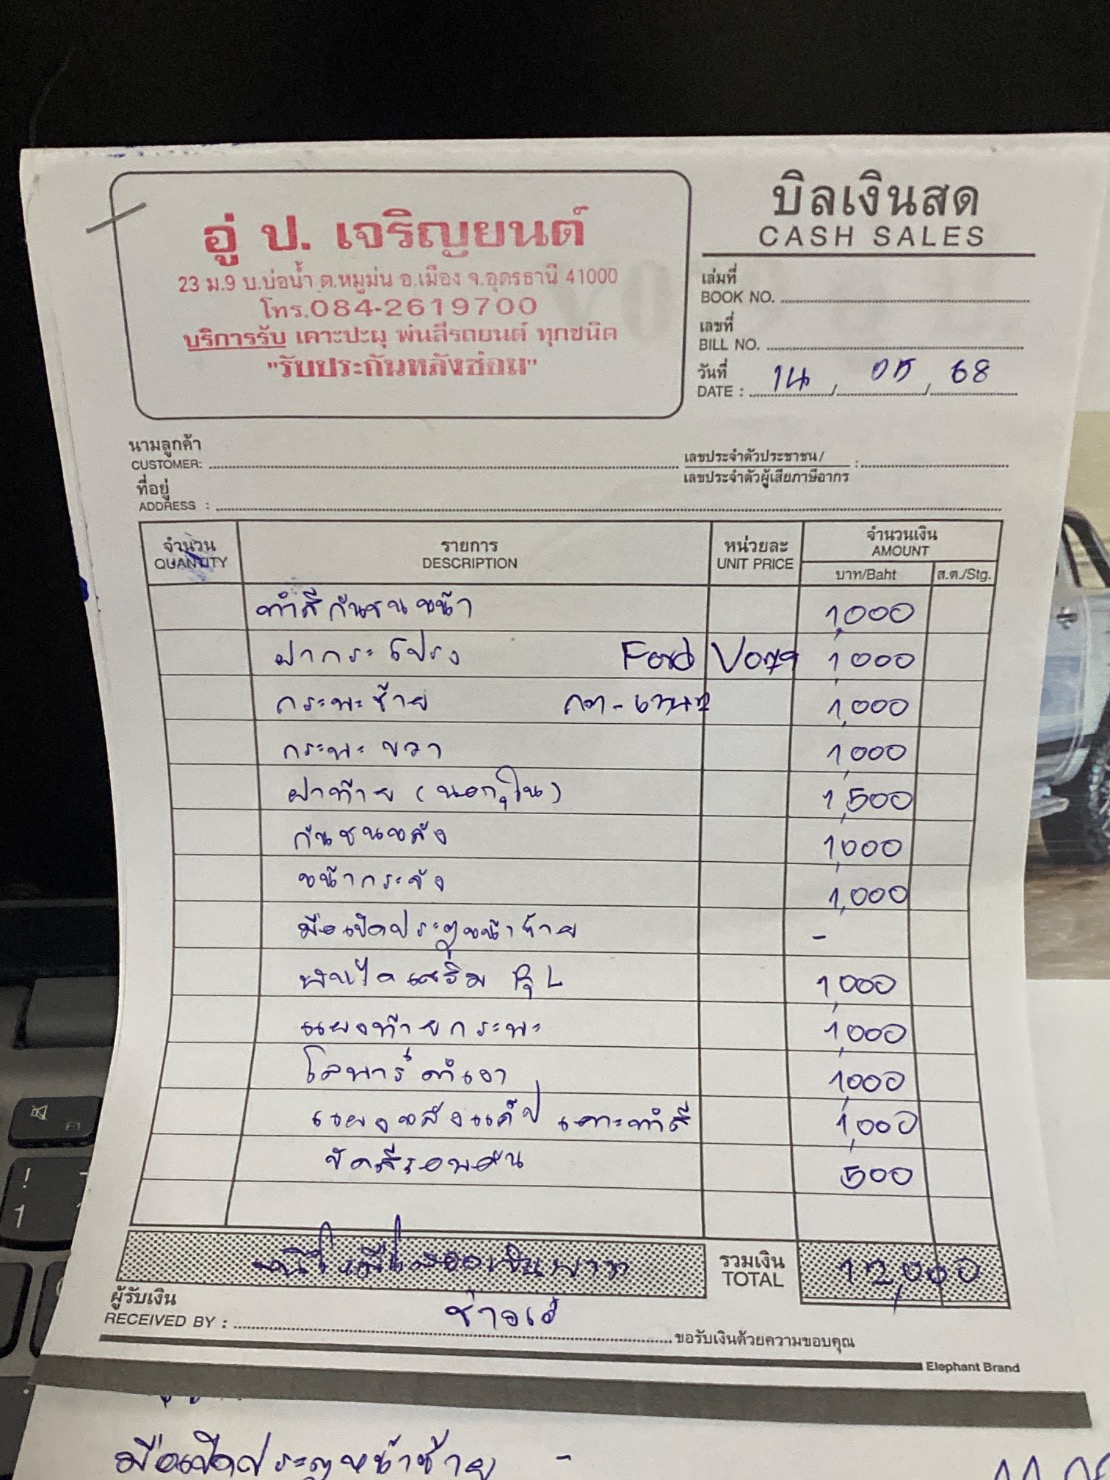 อู่ ป. เจริญยนต์
23 ม.9 บ.บ่อน้ำ ต.หมูม่น อ.เมือง จ.อุดรธานี 41000
โทร.084-2619700
บริการรับ เคาะปะผุ พ่นสีรถยนต์ ทุกชนิด
"รับประกันหลังซ่อม"
บิลเงินสด
CASH SALES
เล่มที่
BOOK NO.
เลขที่
BILL NO.
วันที่
DATE : 14 / 05 / 68
นามลูกค้า
CUSTOMER:
เลขประจำตัวประชาชน/
เลขประจำตัวผู้เสียภาษีอากร :
ที่อยู่
ADDRESS :
จำนวน รายการ หน่วยละ จำนวนเงิน
QUANTITY DESCRIPTION UNIT PRICE AMOUNT
บาท/Baht ส.ต./Stg.
ทำสีกันชนหน้า 1,000
ฝากระโปรง Ford 1,000
กระพะซ้าย 1,000
กระพะขวา 1,000
ฝาท้าย (นอก,ใน) 1,500
กันชนหลัง 1,000
หน้ากระจัง 1,000
มือเปิดประตูหน้าซ้าย -
บันไดเสริม R,L 1,000
แผงท้ายกระพะ 1,000
โลบาร์ดำเงา 1,000
แผงหลังแค็ป เคาะทำสี 1,000
ขัดสีรอบคัน 500
หนึ่งหมื่นสองพันบาท รวมเงิน 12,000
TOTAL
ผู้รับเงิน
RECEIVED BY : ช่างเอ๋ ขอรับเงินด้วยความขอบคุณ
Elephant Brand
มือเปิดประตูหน้าซ้าย -